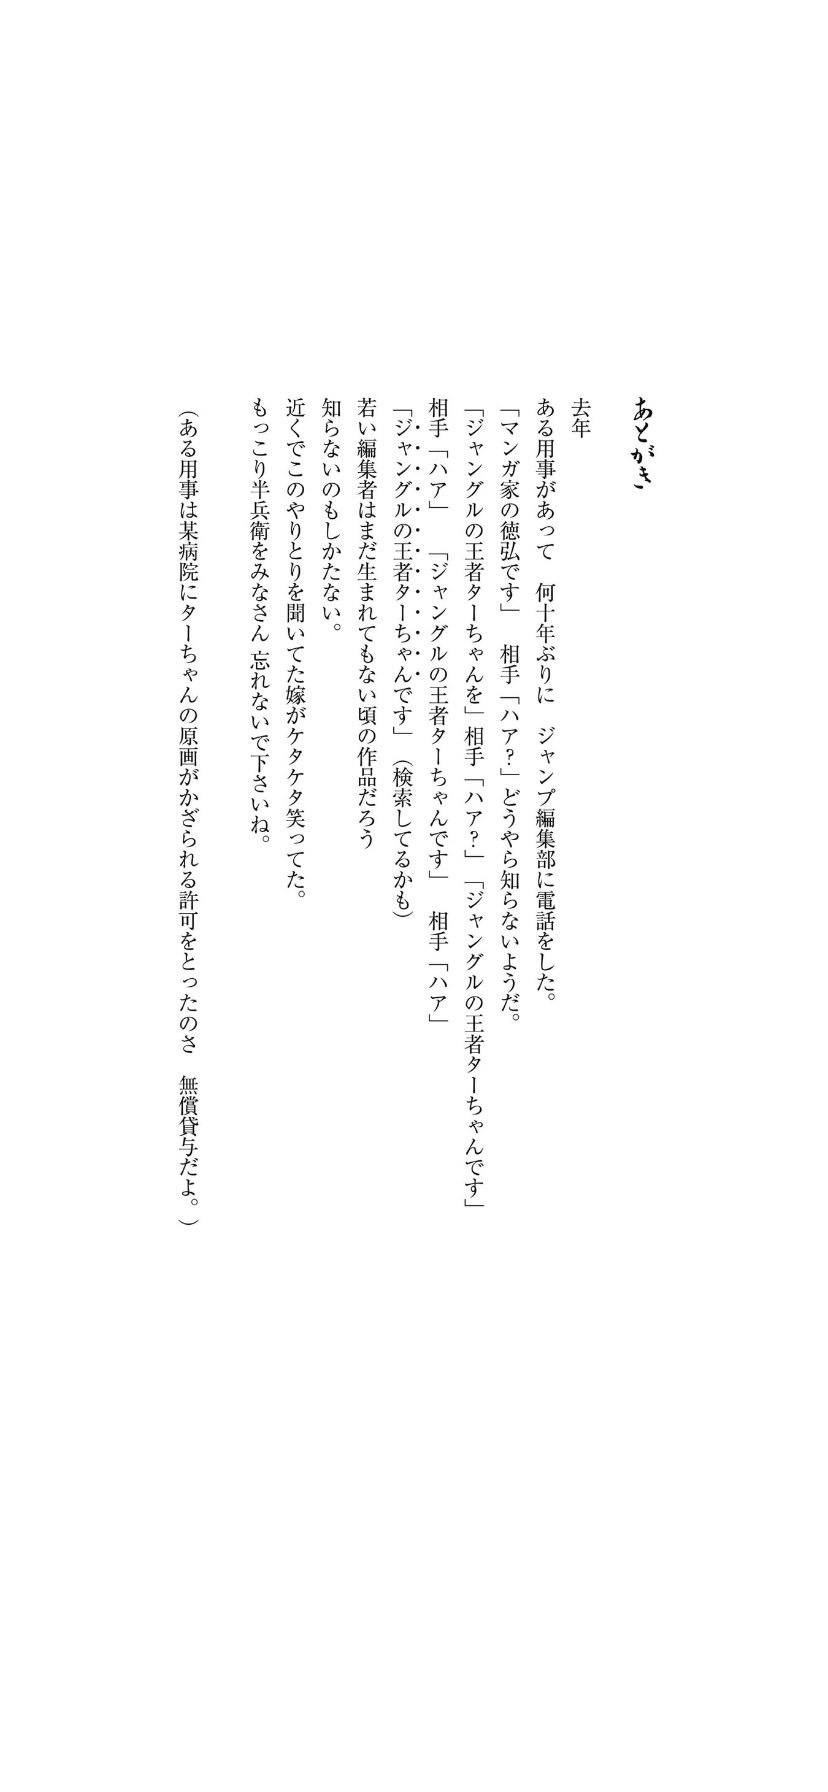 あとがき
去年
ある用事があって　何十年ぶりに　ジャンプ編集部に電話をした。
「マンガ家の徳弘です」　相手「ハア?」どうやら知らないようだ。
「ジャングルの王者ターちゃんを」相手「ハア?」「ジャングルの王者ターちゃんです」
相手「ハア」　「ジャングルの王者ターちゃんです」　相手「ハア」
「ジャングルの王者ターちゃんです」（検索してるかも）
若い編集者はまだ生まれてもない頃の作品だろう
知らないのもしかたない。
近くでこのやりとりを聞いてた嫁がケタケタ笑ってた。
もっこり半兵衛をみなさん 忘れないで下さいね。
（ある用事は某病院にターちゃんの原画がかざられる許可をとったのさ　無償貸与だよ。）